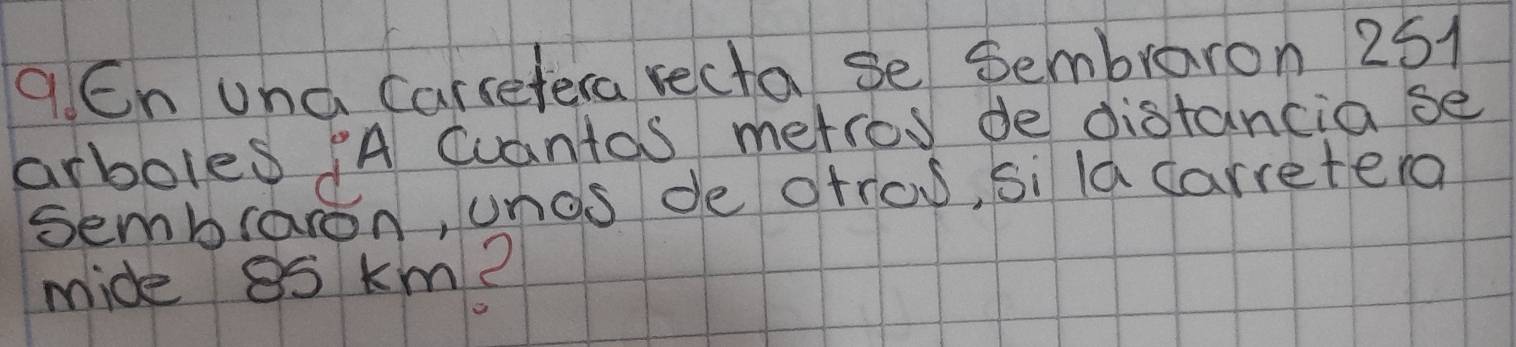 9. En una carretera recta se sembraron 251
arboles ¿A cuantos metros de distancia se
sembraron, unos de otros, si la carretera
mide 85 km?